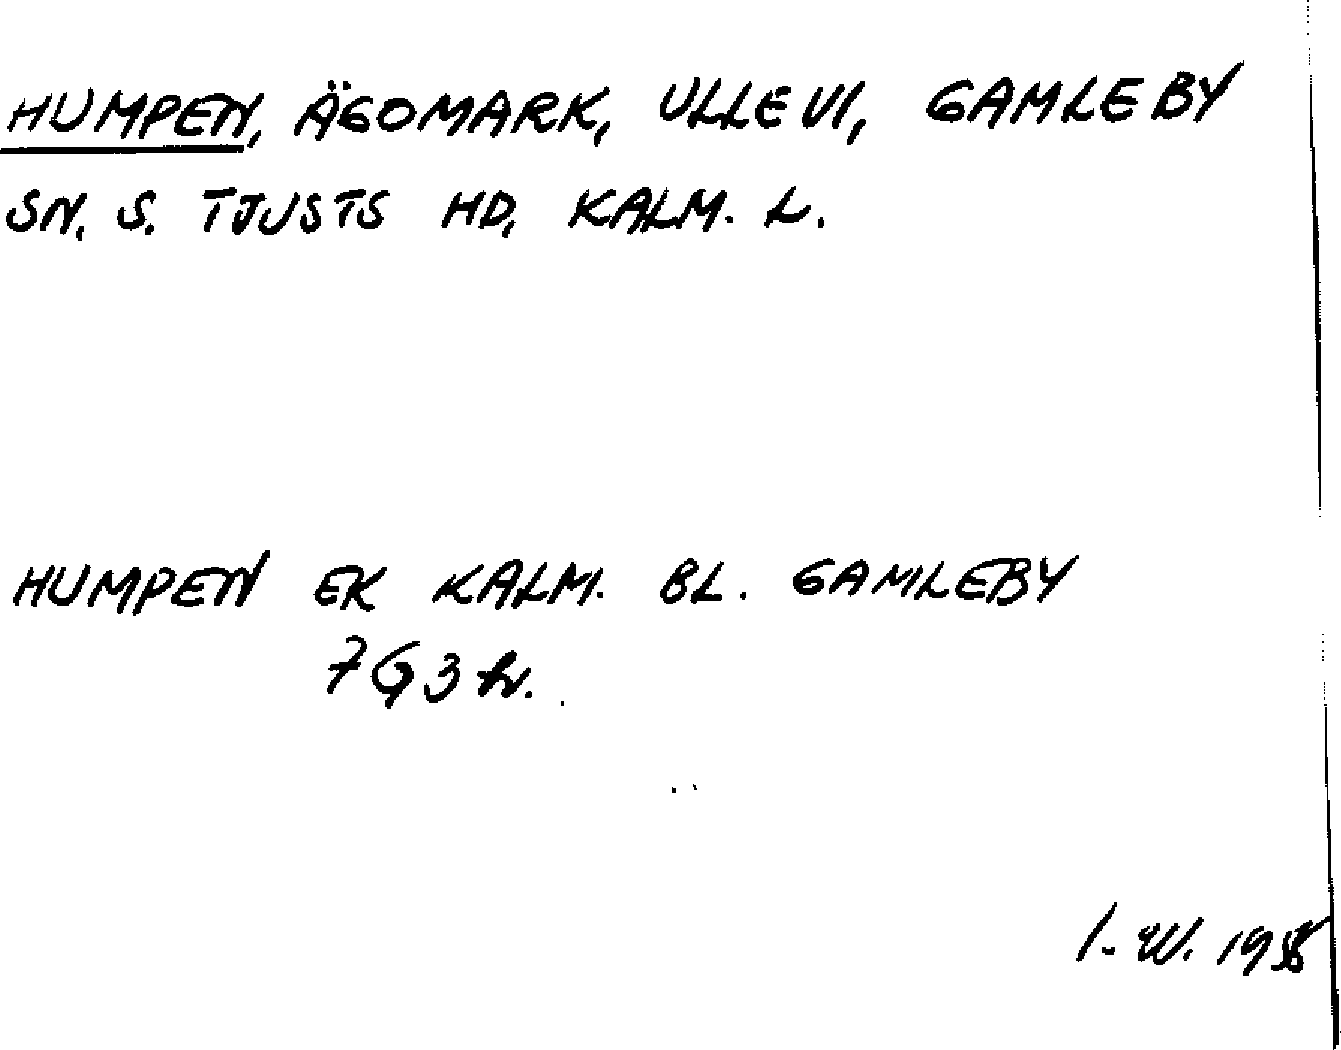 HUMPEN, ÄGOMARK, ULLEVI, GAMLEBY
SN. S. TJUSTS HD, KALM. L.
HUMPEN EK KALM. BL. GAMLEBY
7G3h.
I. W.